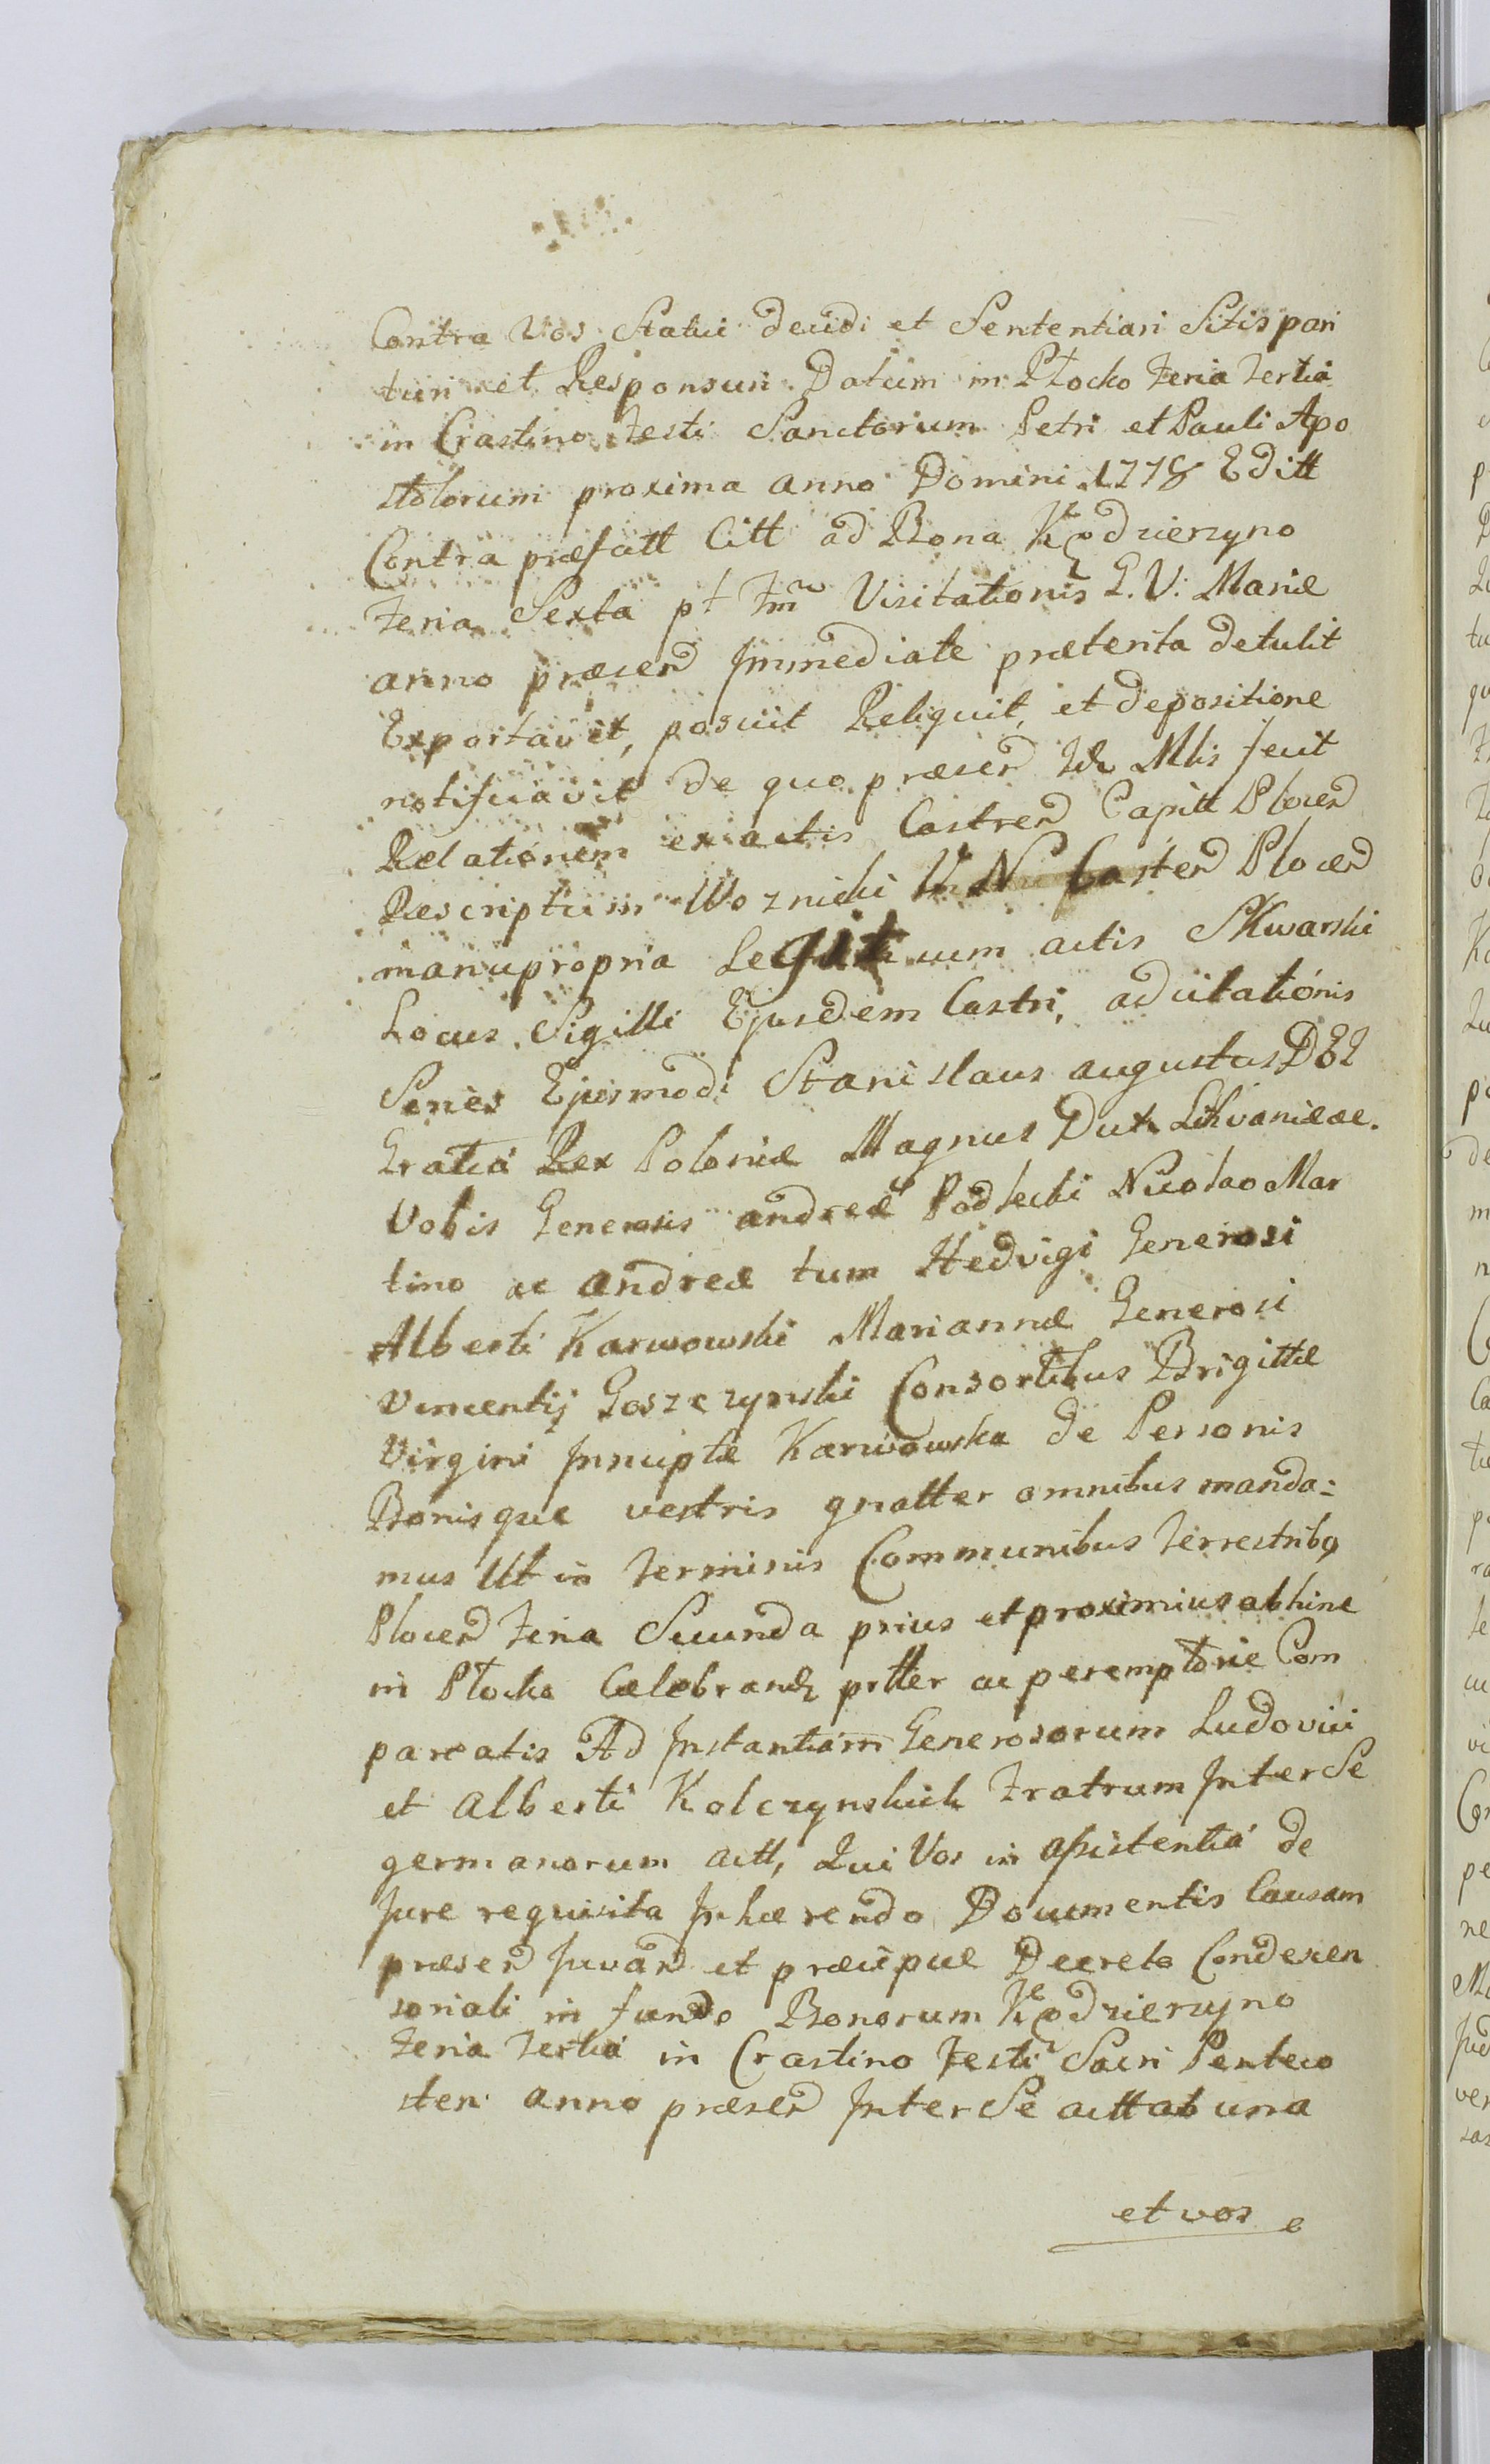 Contra Vos Statui decidi et Sententiari Sitis pari
turi et Responsuri. Datum in Płocko Feria Tertia
in Crastino Festi Sanctorum Petri et Pauli Apo
stolorum proxima anno Domini 1778 Editt
Contra præfatt Citt ad Bona Kędzierzyno
Feria Sexta pt Visitationis B.V. Mariæ
anno præsen Immediate præterita detulit
Exportavit, posuit Reliquit, et depositione
notificavit de quo præsen Mlis fecit
Relationem ex actis Castren Capitt Plocen
Rescriptum Woznicki Castren Plocen
manupropria Legit cum actis Skwarski
Locus Sigilli Ejusdem Castri, ad citationis
Series Ejusmodi Stanislaus augustus DEI
Gratiá Rex Poloniæ Magnus Dux Lithvaniææ.
Vobis Generosis andreæ Podlecki Nicolao Mar
tino ac andreæ tum Hedvigi Generosi
Alberti Karwowski Mariannæ Generosi
Vincentij Goszczynski Consortibus Brigittæ
Virgini Innuptæ Karwowska de Personis
Bonisque vestris gnatter omnibus manda=
mus Ut in Terminis Communibus Terrestribq
Plocen Feria Secunda prius et proximius abhinc
in Płocko Celebrand ptter ac peremptorie Com
pareatis Ad Instantiam Generosorum Ludovici
et Alberti Kolczynskich Fratrum Inter Se
germanorum actt, Qui Vos in assistentiá de
Jure requisita Inhærendo Documentis Causam
præsen Juvan et præcipuè Decreto Condescen
soriali in fundo Bonorum Kędzierzyno
Feria Tertiá in Crastino Festi Sacri Penteco
sten anno præsen Inter Se actt ab una
et vos